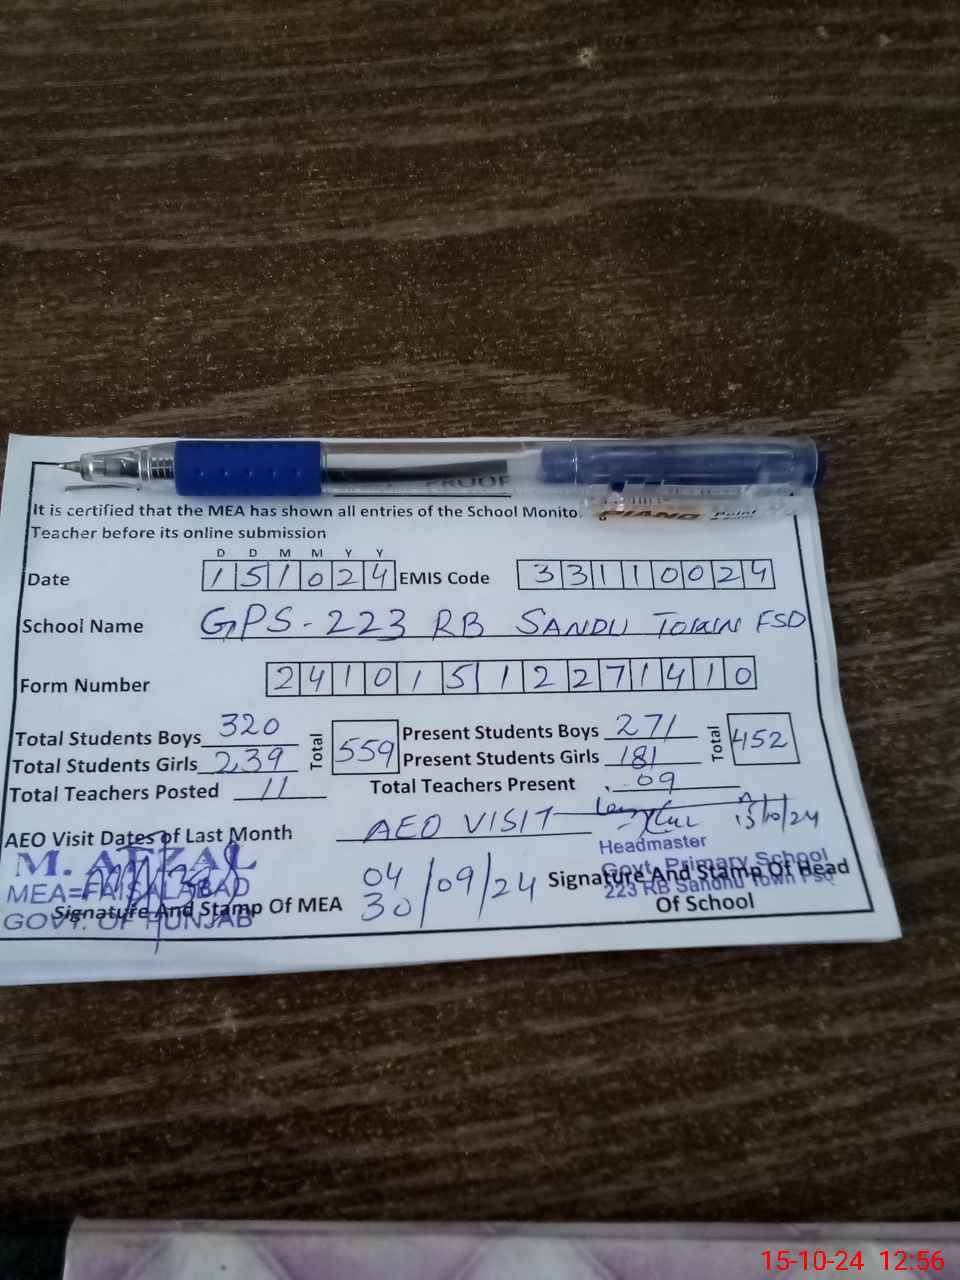 PROOF
PIANO Point
It is certified that the MEA has shown all entries of the School Monito
Teacher before its online submission
D D M M Y Y
Date 151024 EMIS Code 33110024
School Name GPS-223 RB SANDU TOWN FSD
Form Number 24101512271410
Total Students Boys 320 Total 559 Present Students Boys 271 Total 452
Total Students Girls 239 Present Students Girls 181
Total Teachers Posted 11 Total Teachers Present 09
AEO Visit Dates of Last Month AEO VISIT 15/10/24
04
30 /09/24
M. AFZAL
MEA=FAISALABAD
GOVT. OF PUNJAB
Signature And Stamp Of MEA
Headmaster
Govt. Primary School
223 RB Sandhu Town Fsd
Signature And Stamp Of Head
Of School
15-10-24 12:56